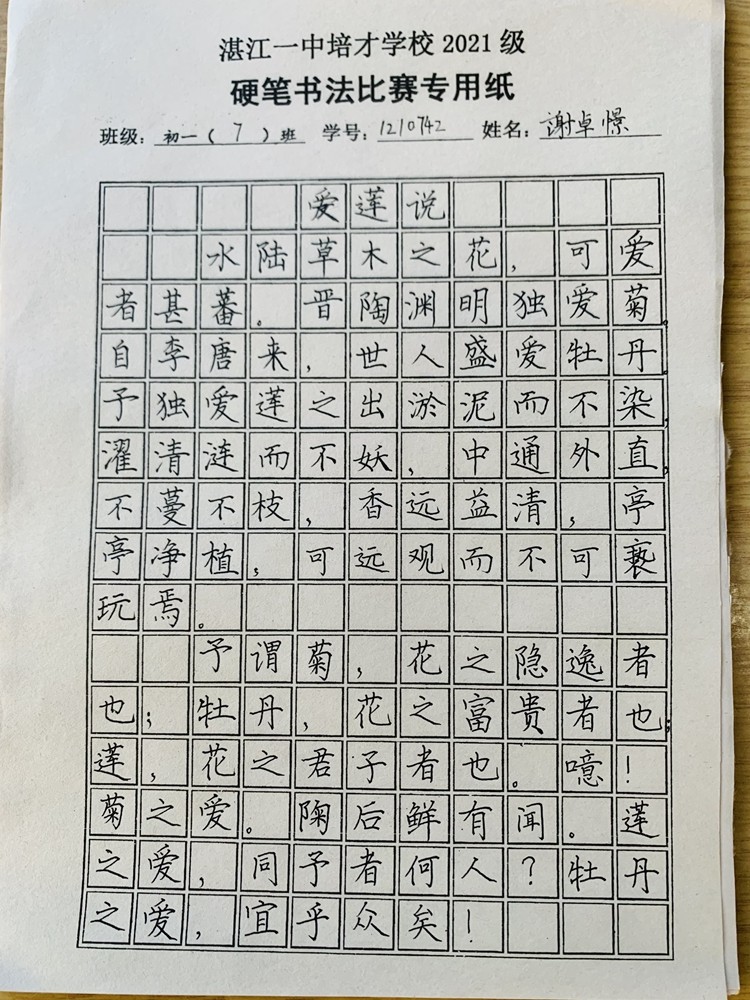 湛江一中培才学校 2021 级
硬笔书法比赛专用纸
班级：初一（7）班 学号：1210742 姓名：谢卓憬
爱莲说
水陆草木之花，可爱
者甚蕃。晋陶渊明独爱菊。
自李唐来，世人盛爱牡丹。
予独爱莲之出淤泥而不染，
濯清涟而不妖，中通外直，
不蔓不枝，香远益清，亭
亭净植，可远观而不可亵
玩焉。
予谓菊，花之隐逸者
也；牡丹，花之富贵者也；
莲，花之君子者也。噫！
菊之爱。陶后鲜有闻。莲
之爱，同予者何人？牡丹
之爱，宜乎众矣！